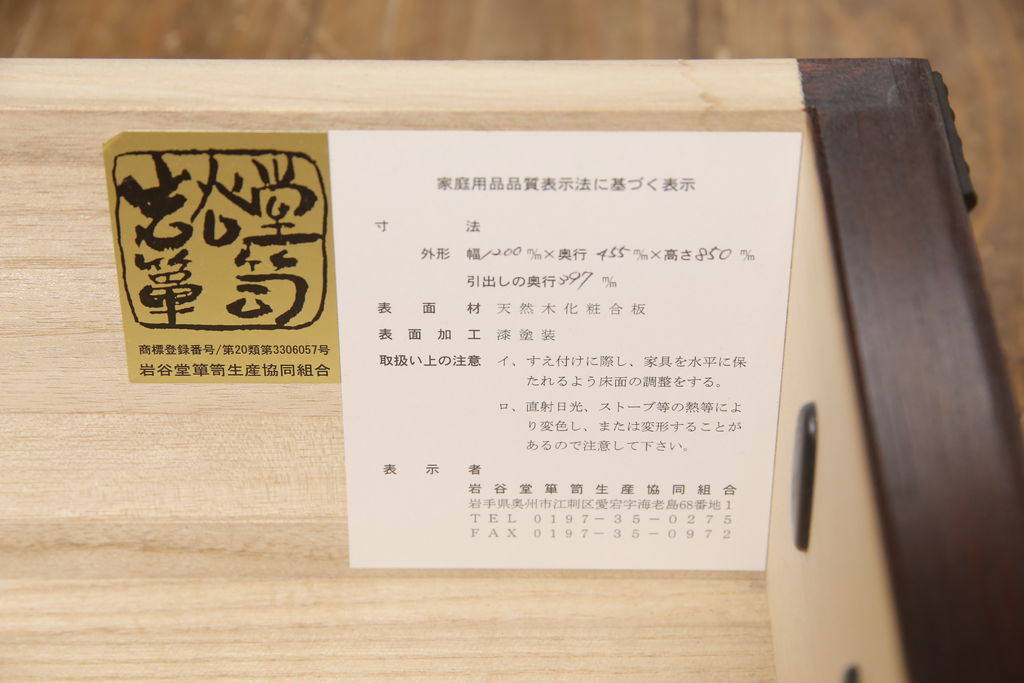 岩谷堂
箪笥
商標登録番号/第20類第3306057号
岩谷堂箪笥生産協同組合
家庭用品品質表示法に基づく表示
寸法
外形 幅1200㎜×奥行 455㎜×高さ850㎜
引出しの奥行397㎜
表面材 天然木化粧合板
表面加工 漆塗装
取扱い上の注意 イ、すえ付けに際し、家具を水平に保
たれるよう床面の調整をする。
ロ、直射日光、ストーブ等の熱等によ
り変色し、または変形することが
あるので注意して下さい。
表示者
岩谷堂箪笥生産協同組合
岩手県奥州市江刺区愛宕字海老島68番地1
TEL 0197-35-0275
FAX 0197-35-0972